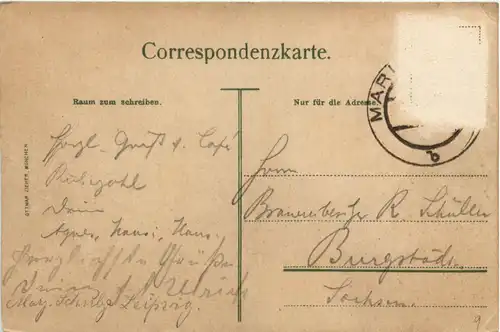 Correspondenzkarte.
Raum zum schreiben.
Nur für die Adresse.
MARI
OTTMAR ZIEHER, MÜNCHEN
Herzl. Gruß v. Café
Rübezahl
Deine
Agnes, Hansi, Hans.
Herzlichste Grüße
Leipzig.
Herrn
Brauereibesitzer R. Schüller
Burgstädt
Sachsen.
9